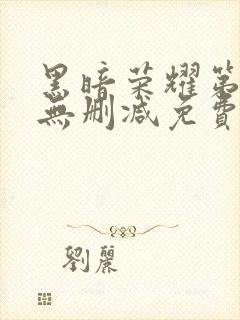 黑暗荣耀第
無刪減免費
劉麗